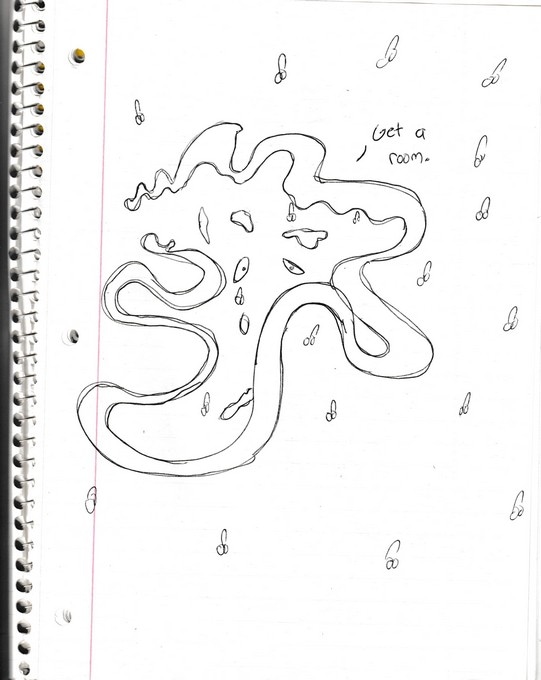 Get a
room.